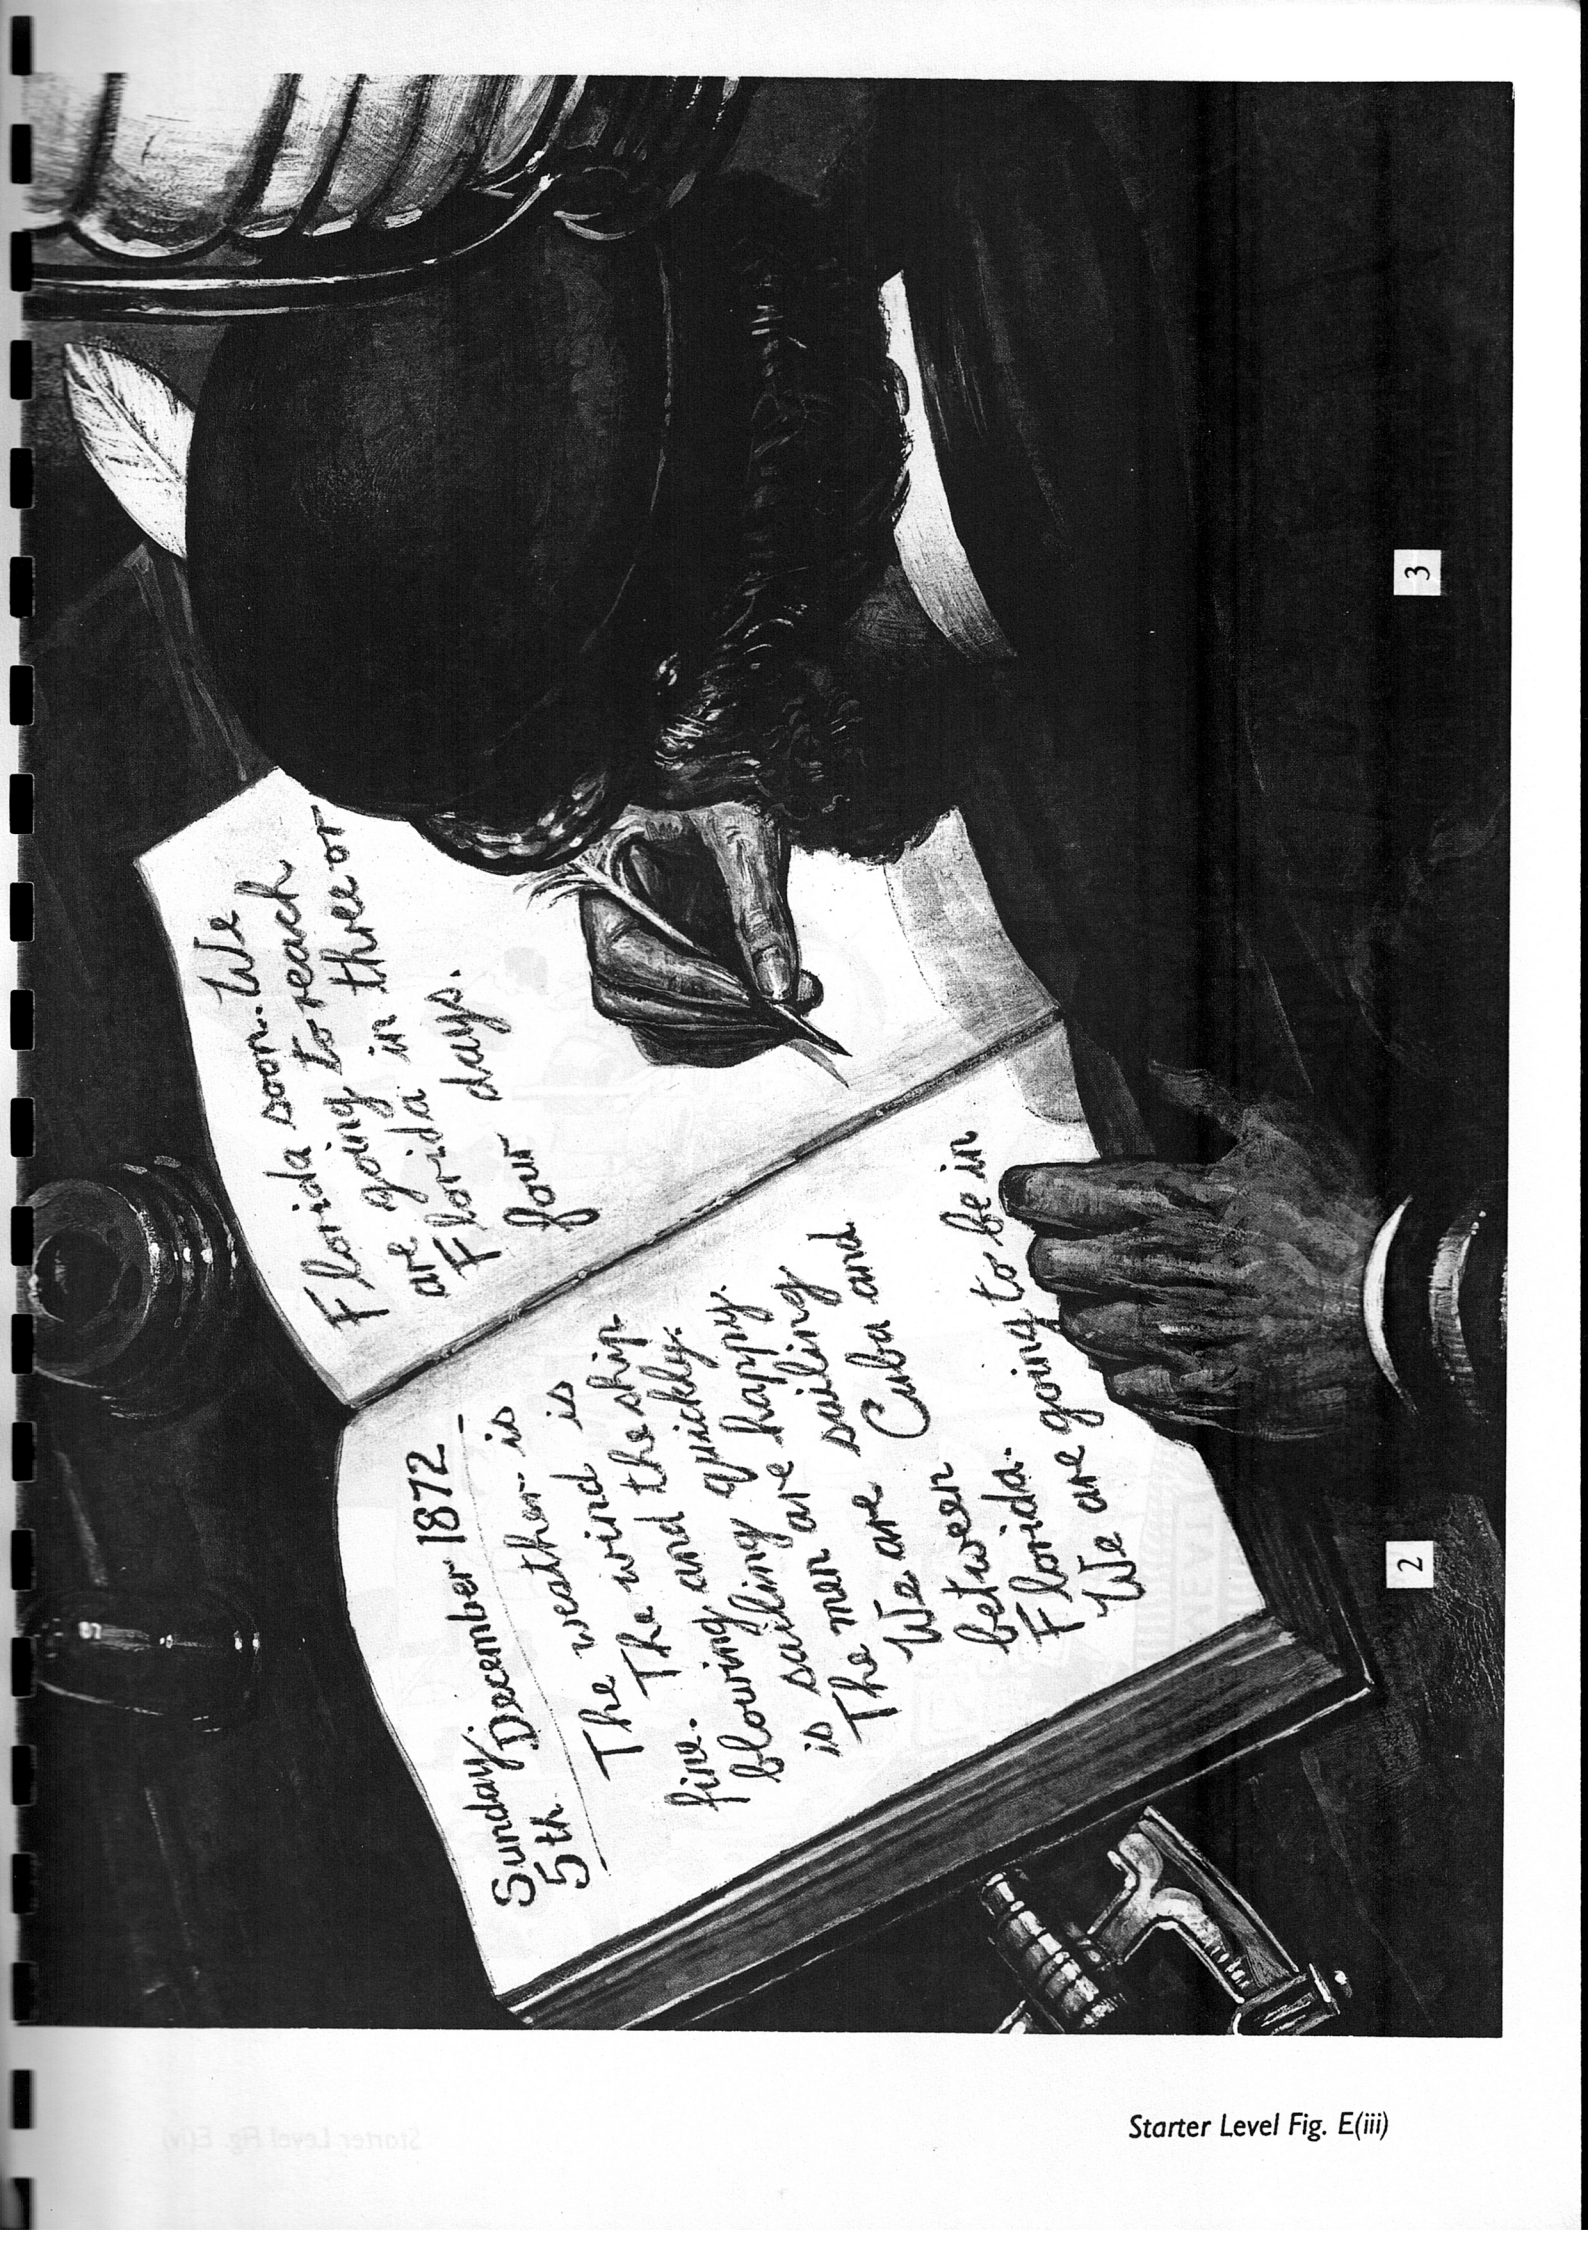 Sunday, December 1872
5th.
The weather is
fine. The wind is
blowing and the ship
is sailing quickly.
The men are happy.
We are sailing
between Cuba and
Florida.
We are going to be in
Florida soon. We
are going to reach
Florida in three or
four days.
2
3
Starter Level Fig. E(iii)